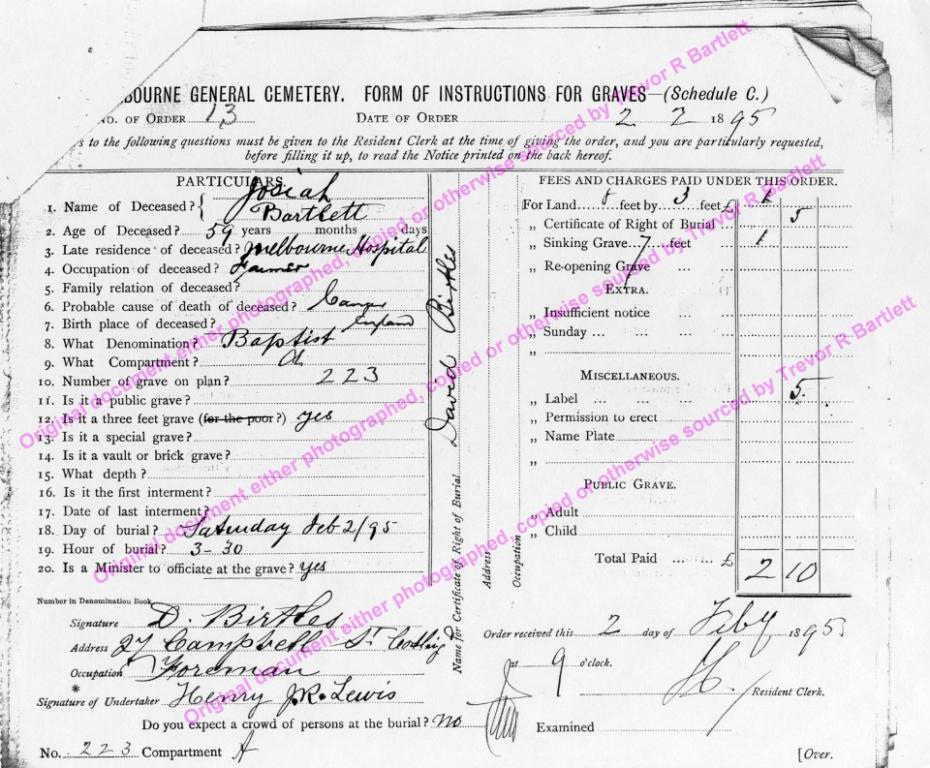 BOURNE GENERAL CEMETERY. FORM OF INSTRUCTIONS FOR GRAVES—(Schedule C.)
NO. OF ORDER 13 DATE OF ORDER 2 2 1895
s to the following questions must be given to the Resident Clerk at the time of giving the order, and you are particularly requested,
before filling it up, to read the Notice printed on the back hereof.
PARTICULARS.
1. Name of Deceased? { Josiah
Bartlett
2. Age of Deceased? 59 years months days
3. Late residence of deceased? Melbourne Hospital
4. Occupation of deceased? Farmer
5. Family relation of deceased?
6. Probable cause of death of deceased? Cancer
7. Birth place of deceased? England
8. What Denomination? Baptist
9. What Compartment?
10. Number of grave on plan? 223
11. Is it a public grave?
12. Is it a three feet grave (for the poor?) yes
13. Is it a special grave?
14. Is it a vault or brick grave?
15. What depth?
16. Is it the first interment?
17. Date of last interment?
18. Day of burial? Saturday Feb 2/95
19. Hour of burial? 3-30
20. Is a Minister to officiate at the grave? yes
Number in Denomination Book
Signature D. Birtles
Address 27 Campbell St
Occupation Foreman
* Signature of Undertaker Henry J.R. Lewis
Do you expect a crowd of persons at the burial? no
No. 223 Compartment A
David Birtles
Name for Certificate of Right of Burial.
Address
Occupation
FEES AND CHARGES PAID UNDER THIS ORDER.
For Land 8 feet by 3 feet £ 1
„ Certificate of Right of Burial 5
„ Sinking Grave 7 feet 1
„ Re-opening Grave
EXTRA.
„ Insufficient notice
„ Sunday
„
MISCELLANEOUS.
„ Label 5
„ Permission to erect
„ Name Plate
„
PUBLIC GRAVE.
„ Adult
„ Child
Total Paid £ 2 10
Order received this 2 day of Feby 1895
at 9 o'clock.
Resident Clerk.
Examined
[Over.
Original document either photographed, copied or otherwise sourced by Trevor R Bartlett
Original document either photographed, copied or otherwise sourced by Trevor R Bartlett
Original document either photographed, copied or otherwise sourced by Trevor R Bartlett